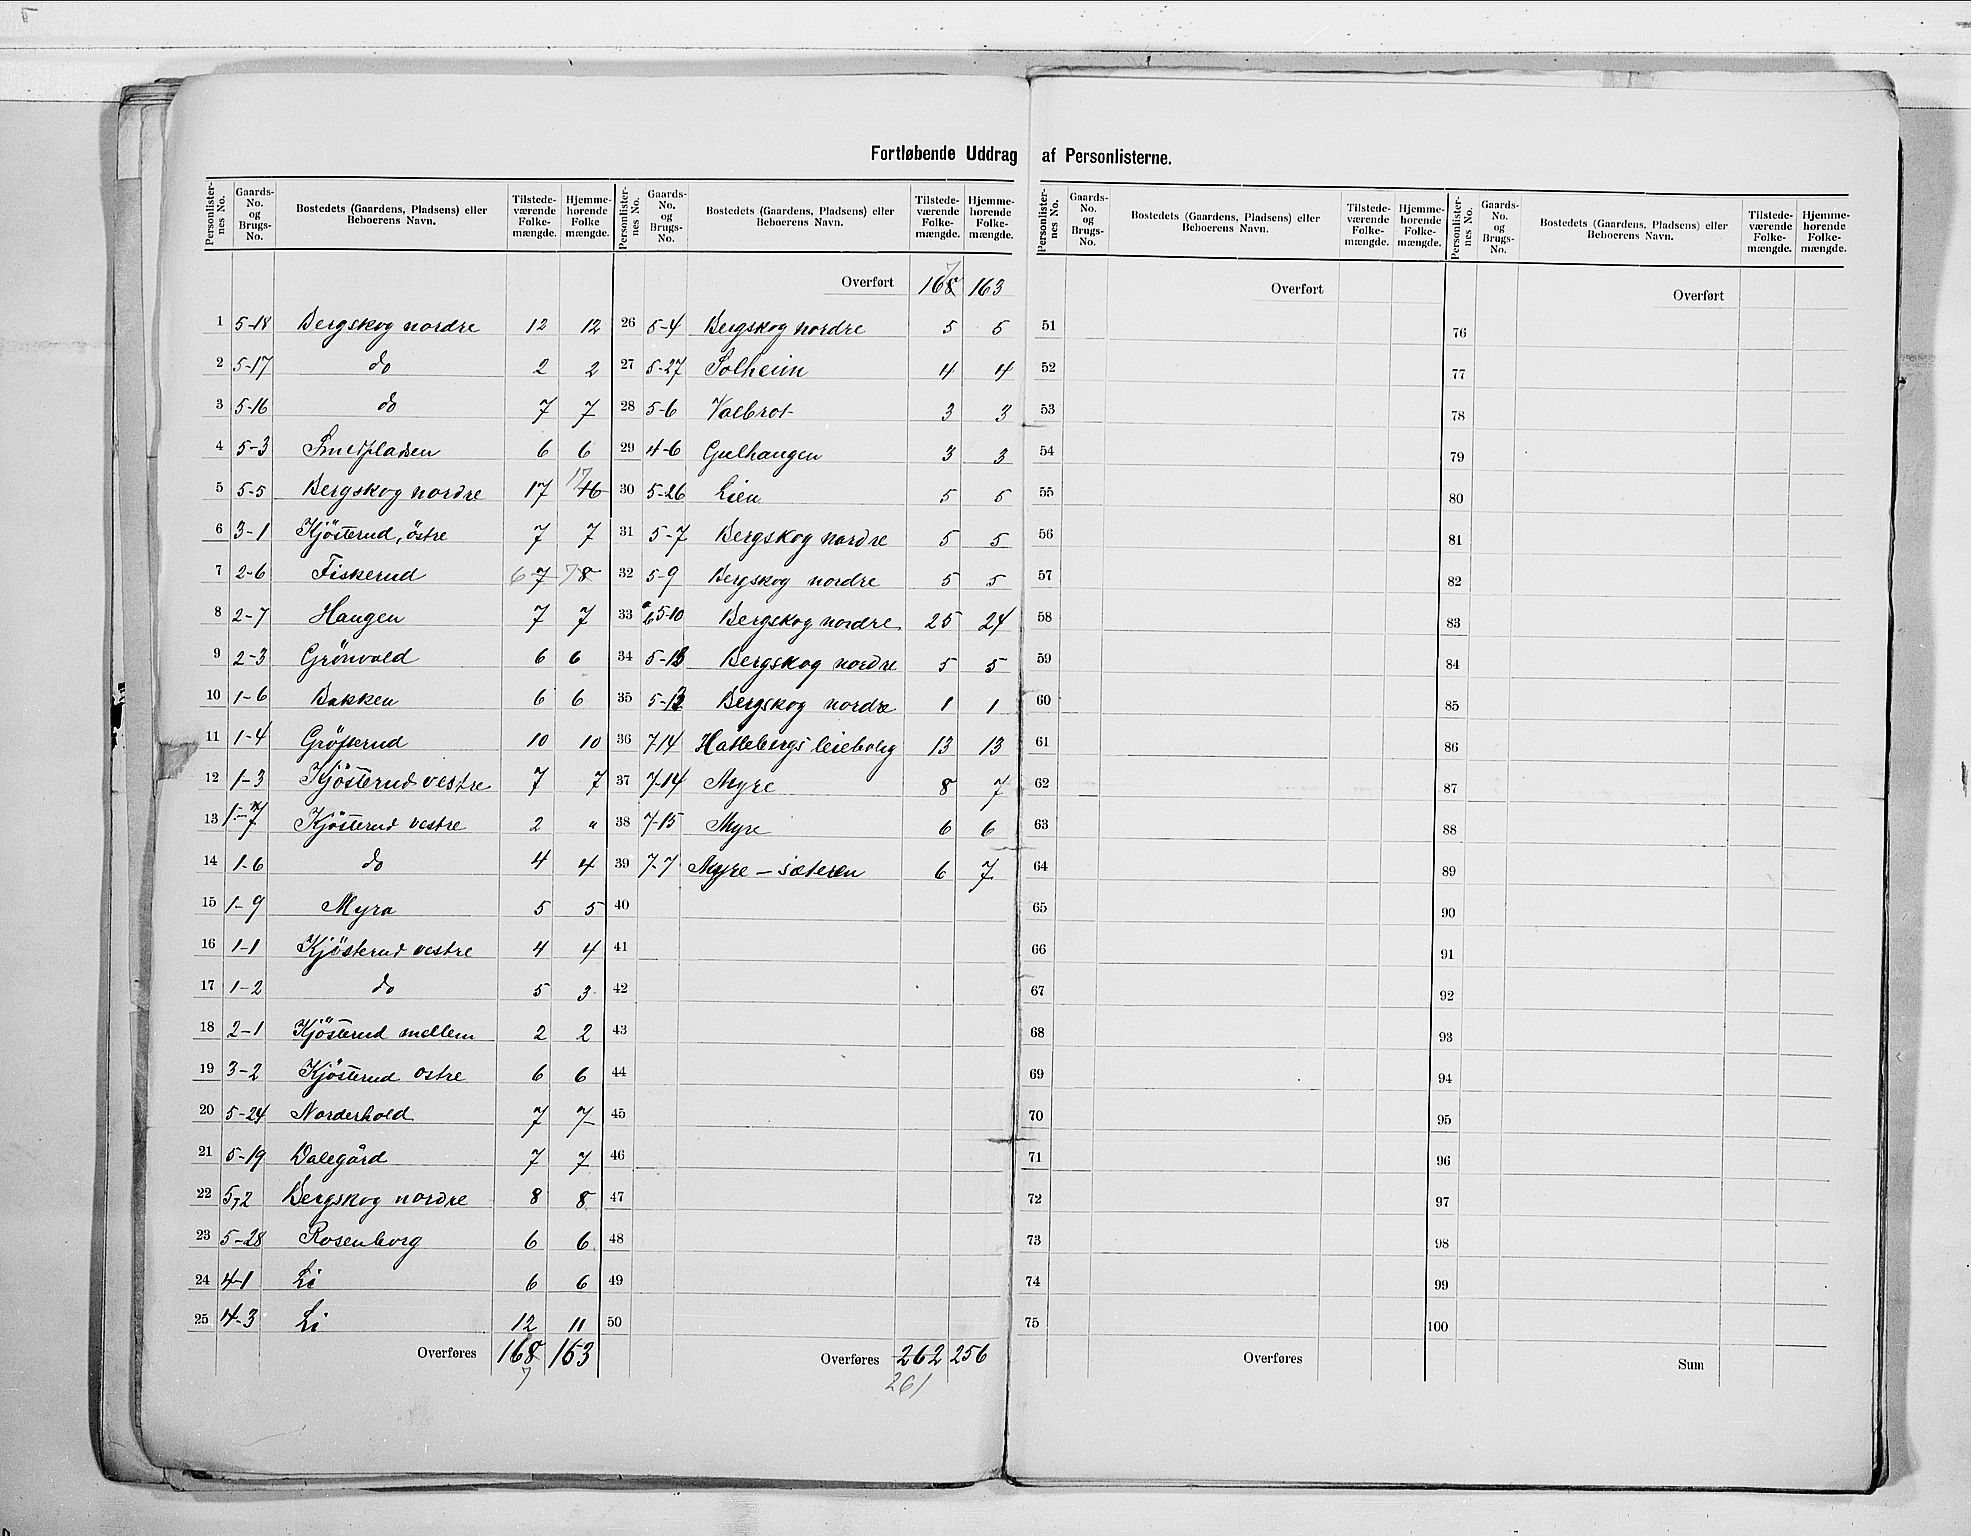 Fortløbende Uddrag af Personlisterne.
Personlisternes No. Gaards-No. og Brugs-No. Bostedets (Gaardens, Pladsens) eller Beboerens Navn. Tilstedeværende Folkemængde. Hjemmehørende Folkemængde.
1 5-18 Bergskog nordre 12 12
2 5-17 do 2 2
3 5-16 do 7 7
4 5-3 Smedpladsen 6 6
5 5-5 Bergskog nordre 17 17 16
6 3-1 Kjösterud, östre 7 7
7 2-6 Fiskerud 6 7 7 8
8 2-7 Haugen 7 7
9 2-3 Grönvold 6 6
10 1-6 Bakken 6 6
11 1-4 Gröfterud 10 10
12 1-3 Kjösterud vestre 7 7
13 1-7 Kjösterud vestre 2 "
14 1-6 do 4 4
15 1-9 Myra 5 5
16 1-1 Kjösterud vestre 4 4
17 1-2 do 5 3
18 2-1 Kjösterud mellem 2 2
19 3-2 Kjösterud ostre 6 6
20 5-24 Norderhold 7 7
21 5-19 Dalegård 7 7
22 5,2 Bergskog nordre 8 8
23 5-28 Rosenborg 6 6
24 4-1 Li 6 6
25 4-3 Li 12 11
Overføres 168 163
7
Personlisternes No. Gaards-No. og Brugs-No. Bostedets (Gaardens, Pladsens) eller Beboerens Navn. Tilstedeværende Folkemængde. Hjemmehørende Folkemængde.
7
Overført 168 163
26 5-4 Bergskog nordre 5 5
27 5-27 Solheim 4 4
28 5-6 Valbrot 3 3
29 4-6 Gulhaugen 3 3
30 5-26 Lien 5 5
31 5-7 Bergskog nordre 5 5
32 5-9 Bergskog nordre 5 5
33 5-10 Bergskog nordre 25 24
34 5-13 Bergskog nordre 5 5
35 5-12 Bergskog nordre 1 1
36 7-14 Hallebergs leiebolig 13 13
37 7-14 Myre 8 7
38 7-15 Myre 6 6
39 7-7 Myre - sæteren 6 7
40
41
42
43
44
45
46
47
48
49
50
Overføres 262 256
261
Personlisternes No. Gaards-No. og Brugs-No. Bostedets (Gaardens, Pladsens) eller Beboerens Navn. Tilstedeværende Folkemængde. Hjemmehørende Folkemængde.
Overført
51
52
53
54
55
56
57
58
59
60
61
62
63
64
65
66
67
68
69
70
71
72
73
74
75
Overføres
Personlisternes No. Gaards-No. og Brugs-No. Bostedets (Gaardens, Pladsens) eller Beboerens Navn. Tilstedeværende Folkemængde. Hjemmehørende Folkemængde.
Overført
76
77
78
79
80
81
82
83
84
85
86
87
88
89
90
91
92
93
94
95
96
97
98
99
100
Sum